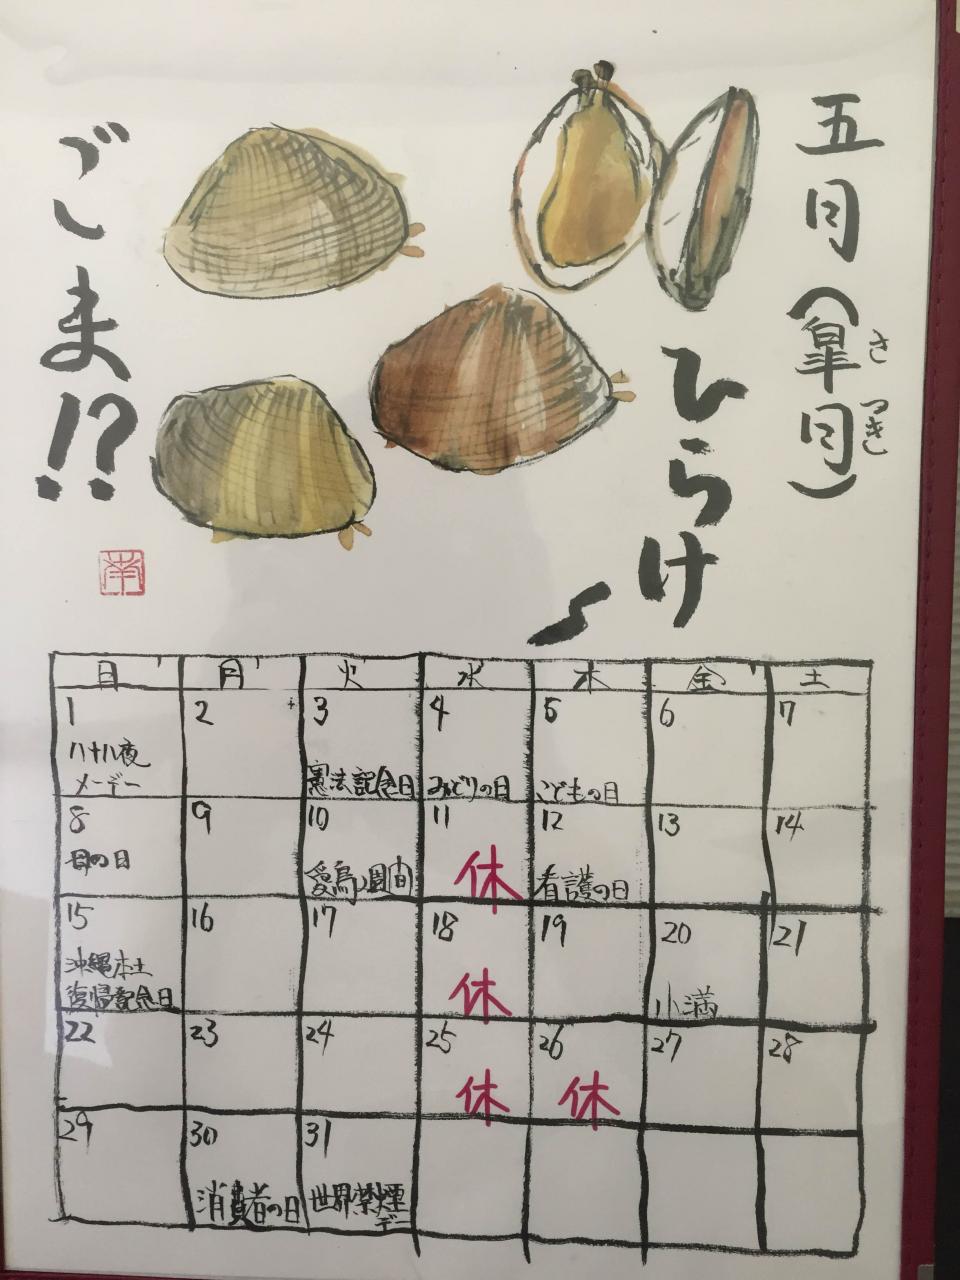 五月(皐月)
さつき
ひらけ
ごま!?
日 月 火 水 木 金 土
1 2 3 4 5 6 7
八十八夜
メーデー
憲法記念日 みどりの日 こどもの日
8 9 10 11 12 13 14
母の日 愛鳥週間 休 看護の日
15 16 17 18 19 20 21
沖縄本土
復帰記念日 休 小満
22 23 24 25 26 27 28
休 休
29 30 31
消費者の日 世界禁煙
デー